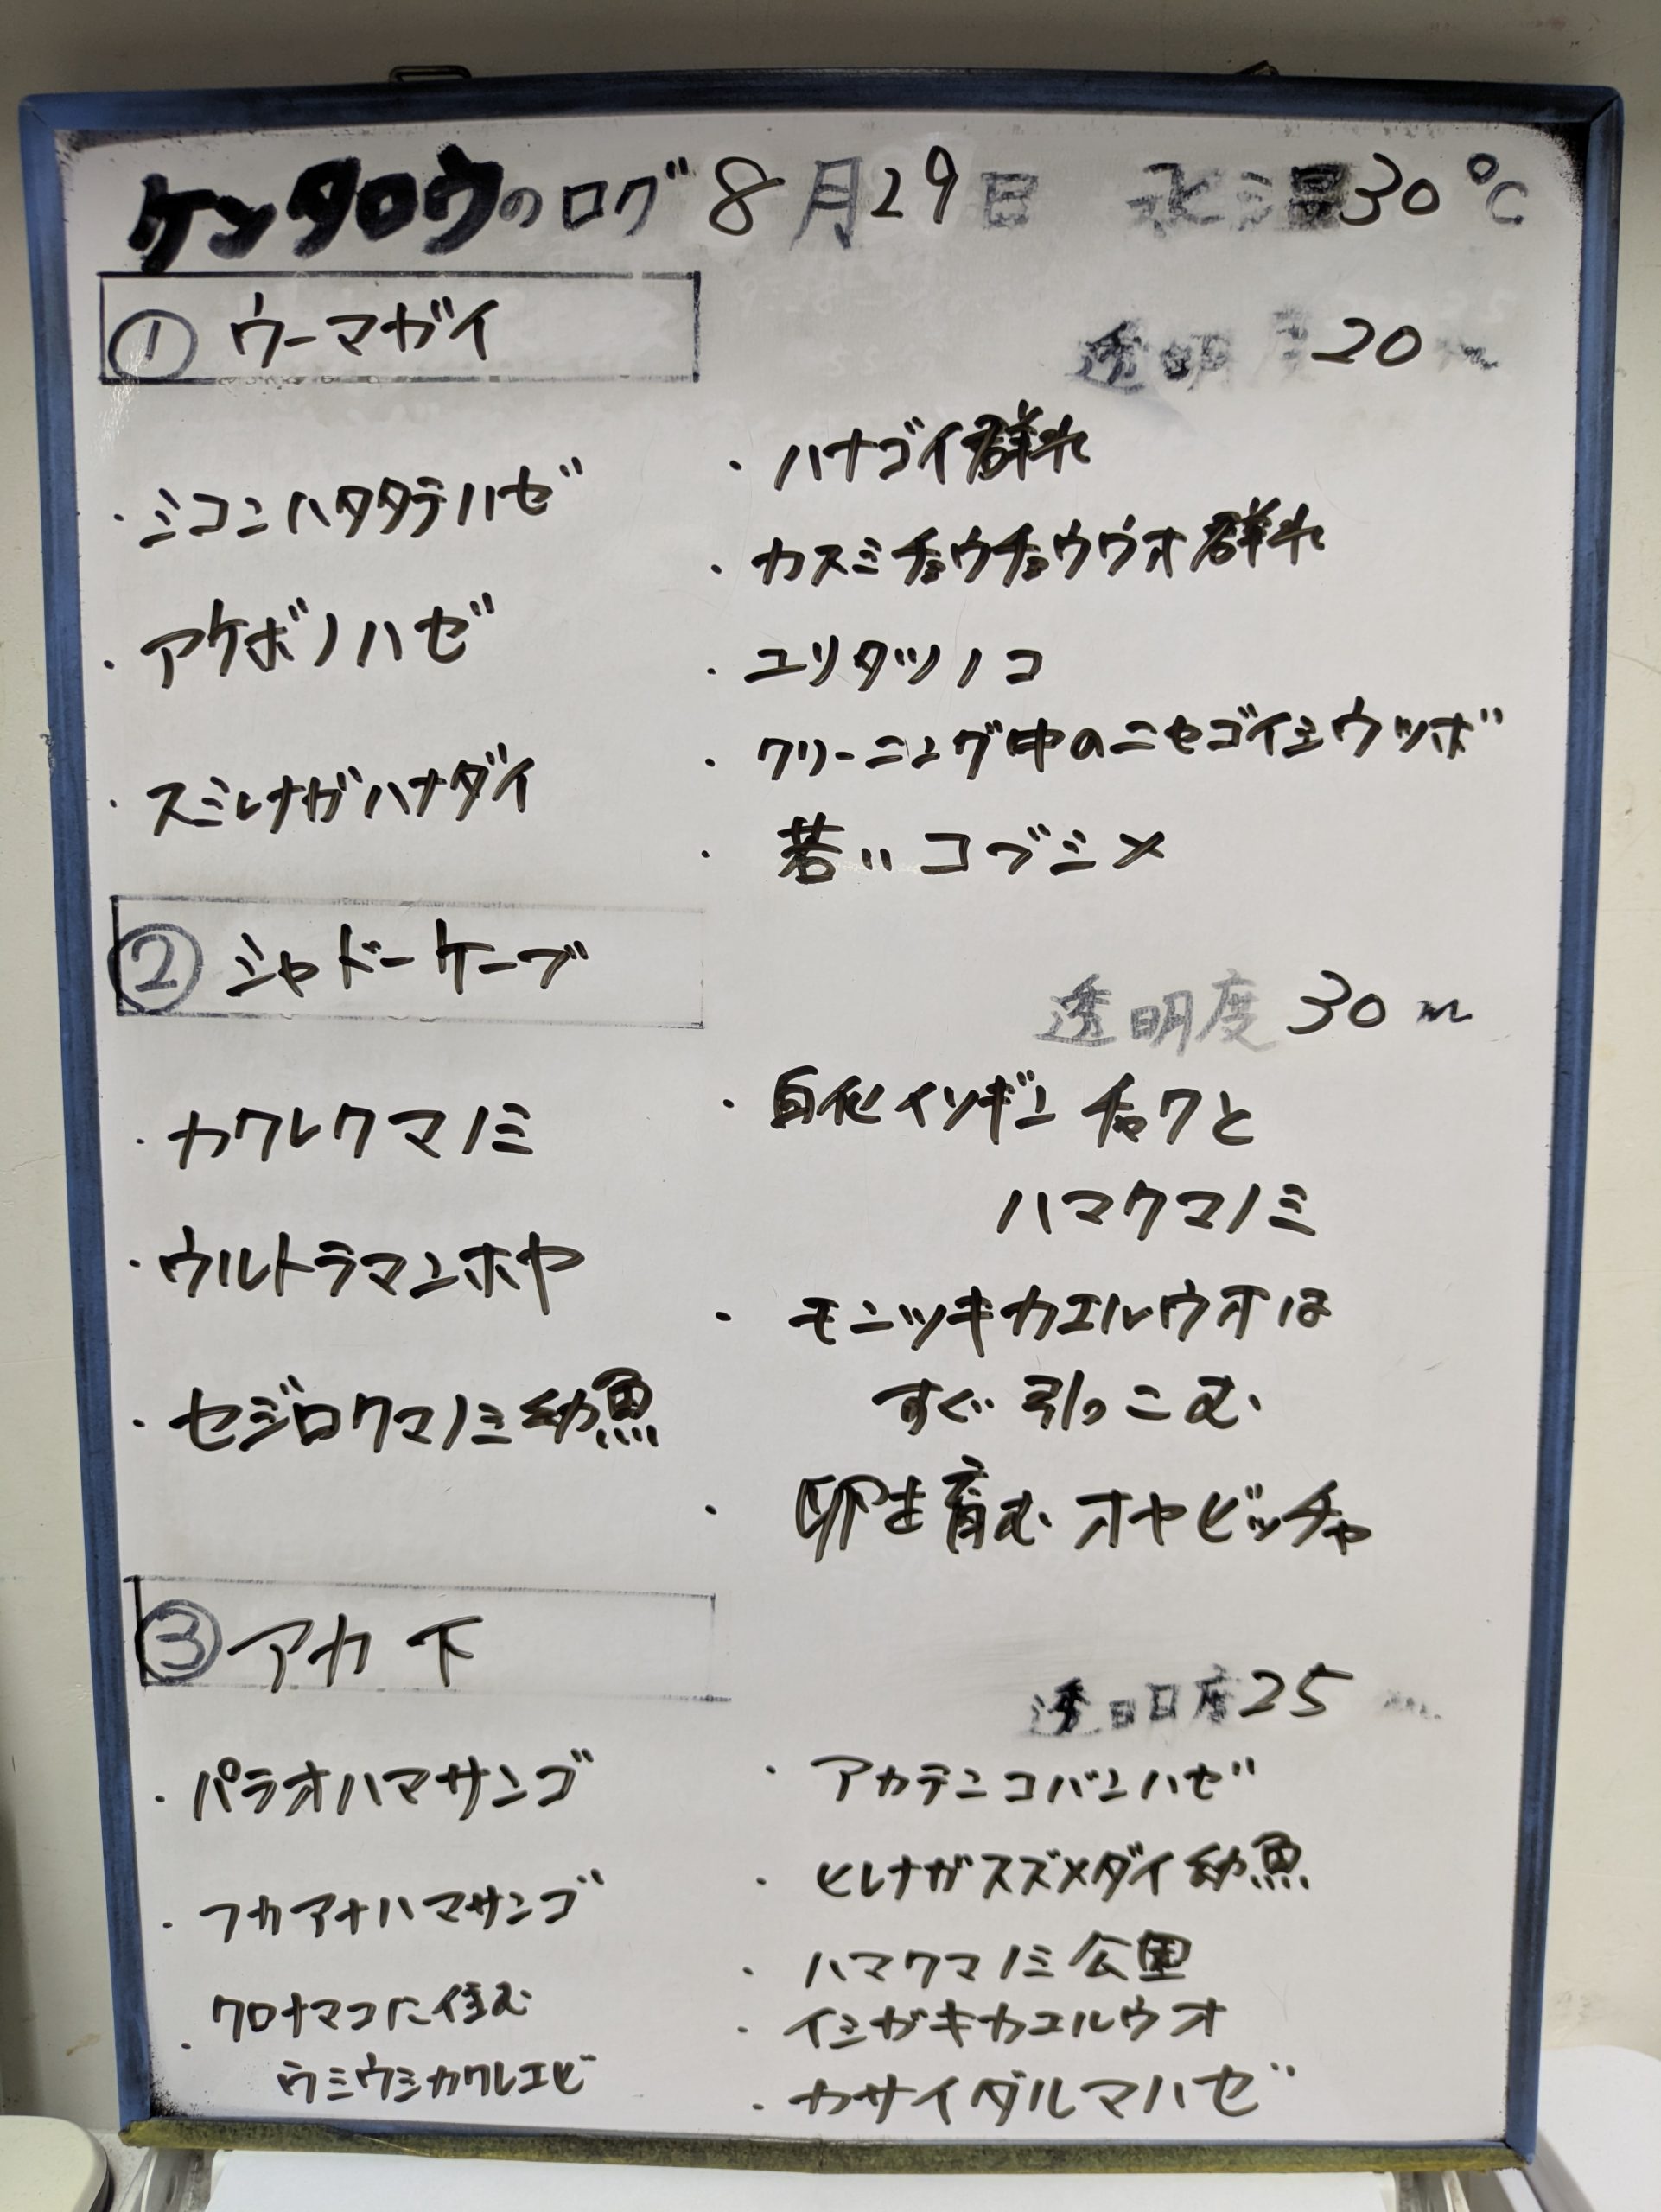 ケンタロウのログ 8月29日 水温30℃
① ウーマガイ
透明度 20 m
・シコンハタタテハゼ
・アケボノハゼ
・スミレナガハナダイ
・ハナゴイ群れ
・カスミチョウチョウウオ群れ
・ユリタツノコ
・クリーニング中のニセゴイシウツボ
・若いコブシメ
② シャドーケーブ
透明度 30 m
・カクレクマノミ
・ウルトラマンホヤ
・セジロクマノミ幼魚
・白化イソギンチャクと
ハマクマノミ
・モンツキカエルウオは
すぐ引っこむ
・卵を育むオヤビッチャ
③ アカ下
透明度 25 m
・パラオハマサンゴ
・フカアナハマサンゴ
・クロナマコに住む
ウミウシカクレエビ
・アカテンコバンハゼ
・ヒレナガスズメダイ幼魚
・ハマクマノミ公園
・イシガキカエルウオ
・カサイダルマハゼ